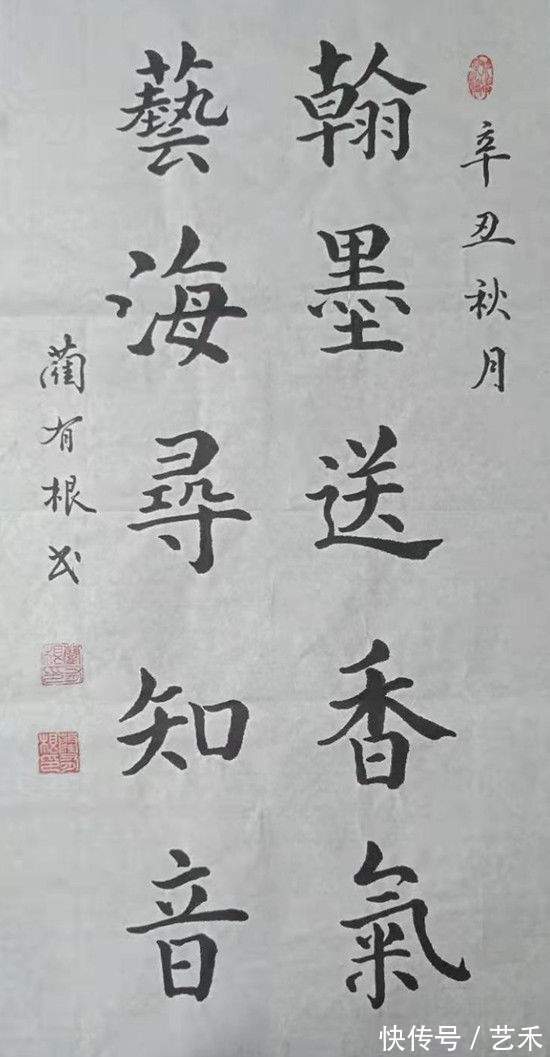 辛丑秋月
翰墨送香氣
藝海尋知音
蔺有根书
快传号 / 艺禾